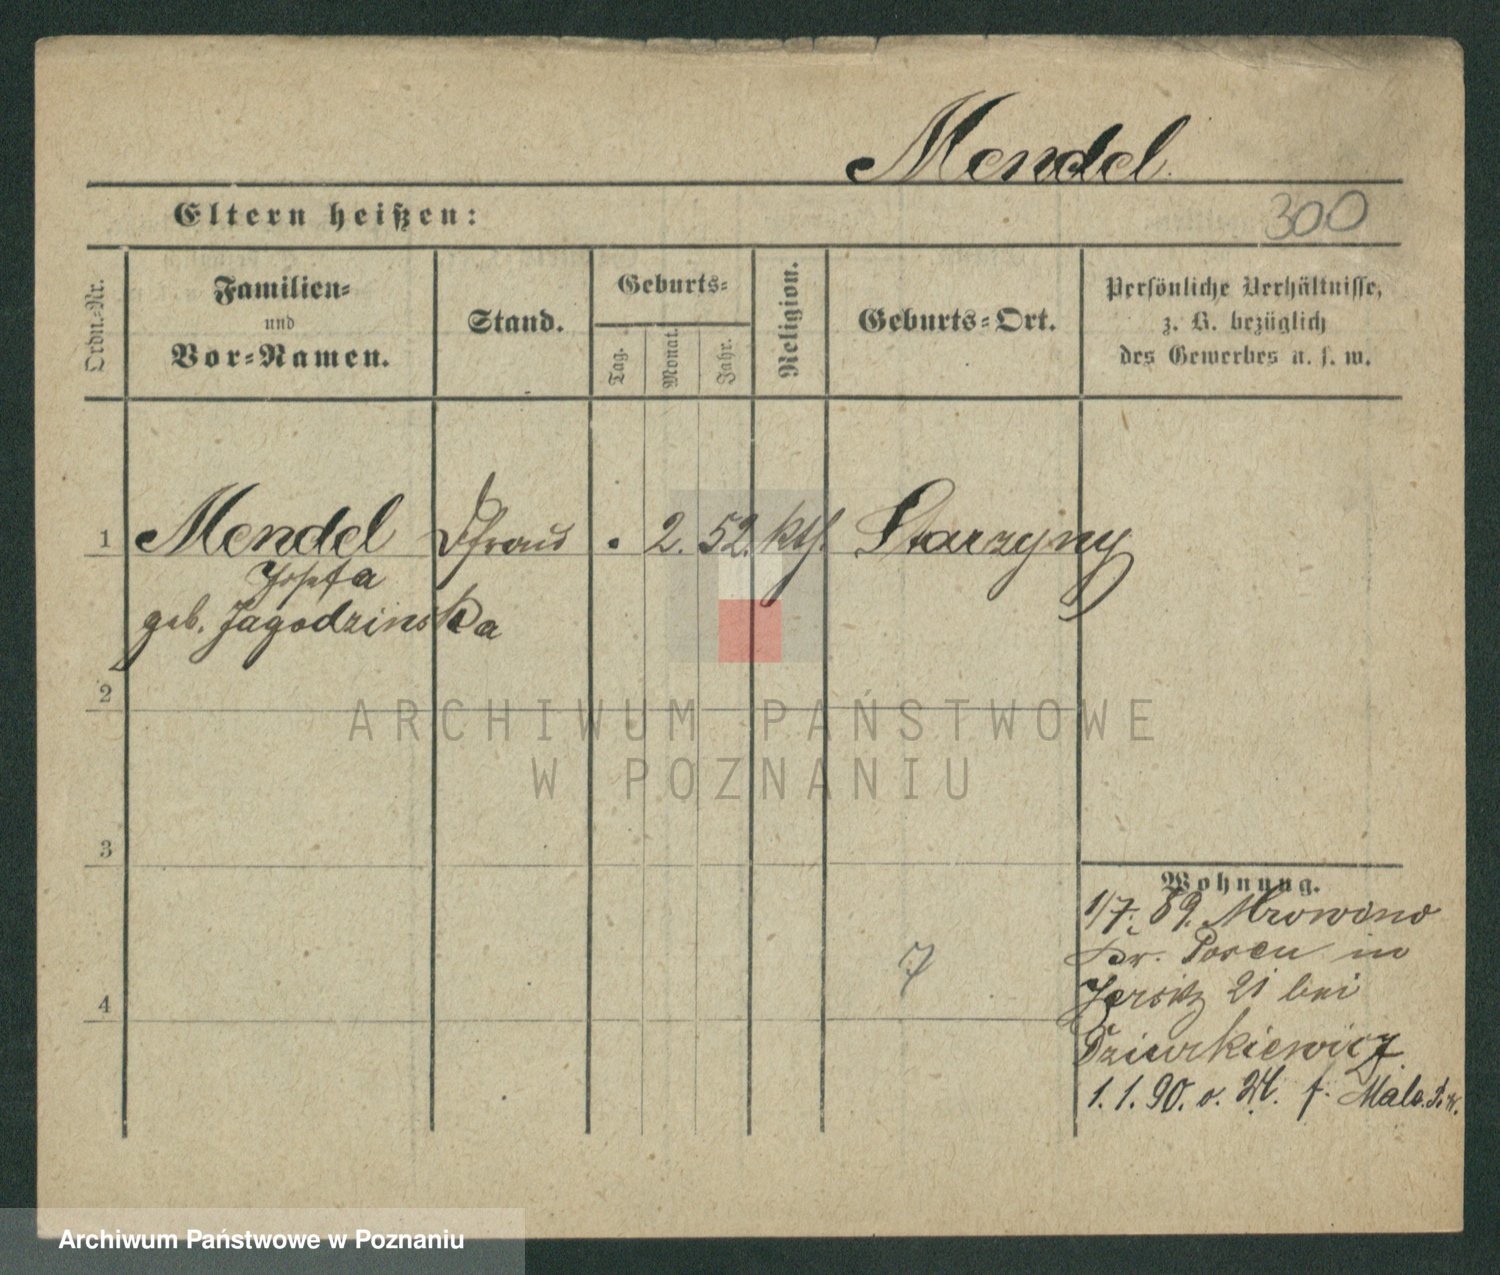 Mendel
Eltern heißen:
300
Ordn.-Nr.
Familien-
und
Vor-Namen.
Stand.
Geburts-
Tag.
Monat.
Jahr.
Religion.
Geburts-Ort.
Persönliche Verhältnisse,
z. B. bezüglich
des Gewerbes u. s. w.
1 Mendel . 2. 52. kth. Starzyny
Josefa
geb. Jagodzinska
2
ARCHIWUM PAŃSTWOWE
W POZNANIU
3
Wohnung.
1/7. 89. Mrowino
Kr. Posen in
7
Jersitz 21 bei
4
Dziurkiewicz
1. 1. 90. f.
Archiwum Państwowe w Poznaniu